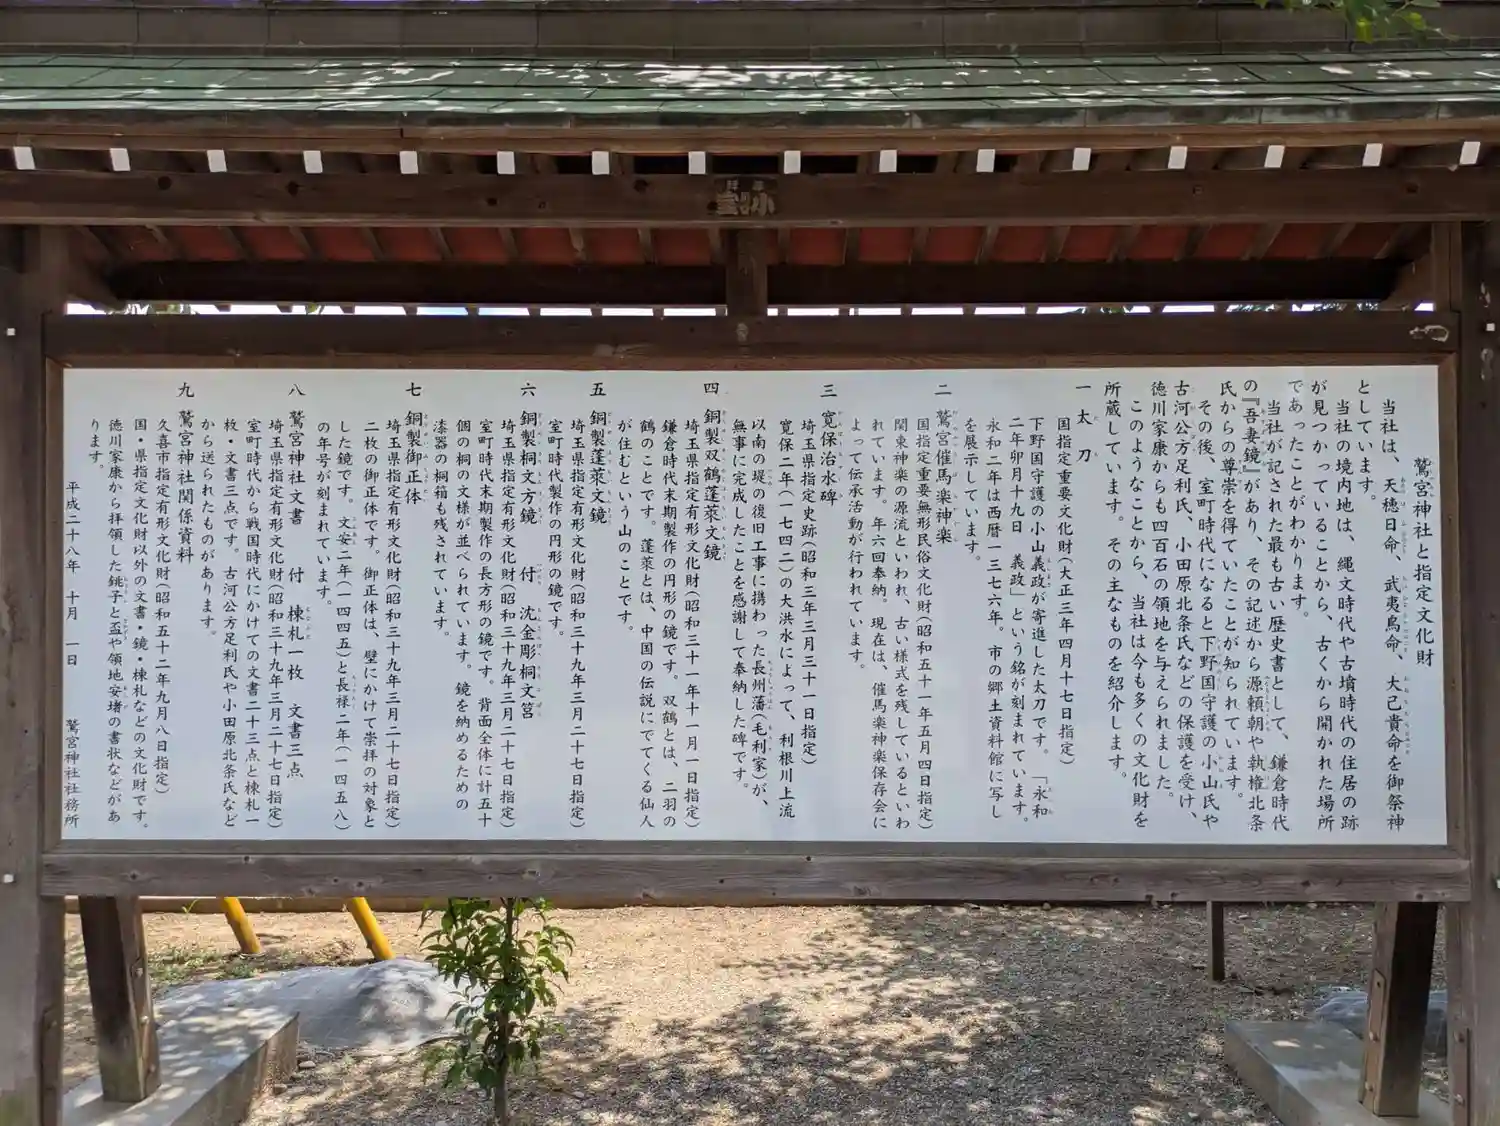 鷲宮神社と指定文化財
当社は、天穂日命、武夷鳥命、大己貴命を御祭神
としています。
当社の境内地は、縄文時代や古墳時代の住居の跡
が見つかっていることから、古くから開かれた場所
であったことがわかります。
当社が記された最も古い歴史書として、鎌倉時代
の『吾妻鏡』があり、その記述から源頼朝や執権北条
氏からの尊崇を得ていたことが知られています。
その後、室町時代になると下野国守護の小山氏や
古河公方足利氏、小田原北条氏などの保護を受け、
徳川家康からも四百石の領地を与えられました。
このようなことから、当社は今も多くの文化財を
所蔵しています。その主なものを紹介します。
一 太刀
国指定重要文化財(大正三年四月十七日指定)
下野国守護の小山義政が寄進した太刀です。「永和
二年卯月十九日 義政」という銘が刻まれています。
永和二年は西暦一三七六年。市の郷土資料館に写し
を展示しています。
二 鷲宮催馬楽神楽
国指定重要無形民俗文化財(昭和五十一年五月四日指定)
関東神楽の源流といわれ、古い様式を残しているといわ
れています。年六回奉納。現在は、催馬楽神楽保存会に
よって伝承活動が行われています。
三 寛保治水碑
埼玉県指定史跡(昭和三年三月三十一日指定)
寛保二年(一七四二)の大洪水によって、利根川上流
以南の堤の復旧工事に携わった長州藩(毛利家)が、
無事に完成したことを感謝して奉納した碑です。
四 銅製双鶴蓬莱文鏡
埼玉県指定有形文化財(昭和三十一年十一月一日指定)
鎌倉時代末期製作の円形の鏡です。双鶴とは、二羽の
鶴のことです。蓬莱とは、中国の伝説にでてくる仙人
が住むという山のことです。
五 銅製蓬莱文鏡
埼玉県指定有形文化財(昭和三十九年三月二十七日指定)
室町時代製の円形の鏡です。
六 銅製桐文方鏡 付 沈金彫桐文筥
埼玉県指定有形文化財(昭和三十九年三月二十七日指定)
室町時代末期製作の長方形の鏡です。背面全体に計五十
個の桐の文様が並べられています。鏡を納めるための
漆器の桐箱も残されています。
七 銅製御正体
埼玉県指定有形文化財(昭和三十九年三月二十七日指定)
二枚の御正体です。御正体は、壁にかけて崇拝の対象と
した鏡です。文安二年(一四四五)と長禄二年(一四五八)
の年号が刻まれています。
八 鷲宮神社文書 付 棟札一枚 文書三点
埼玉県指定有形文化財(昭和三十九年三月二十七日指定)
室町時代から戦国時代にかけての文書二十三点と棟札一
枚・文書三点です。古河公方足利氏や小田原北条氏など
から送られたものがあります。
九 鷲宮神社関係資料
久喜市指定有形文化財(昭和五十二年九月八日指定)
国・県指定文化財以外の文書・鏡・棟札などの文化財です。
徳川家康から拝領した銚子と盃や領地安堵の書状などがあ
ります。
平成二十八年 十月 一日
鷲宮神社社務所